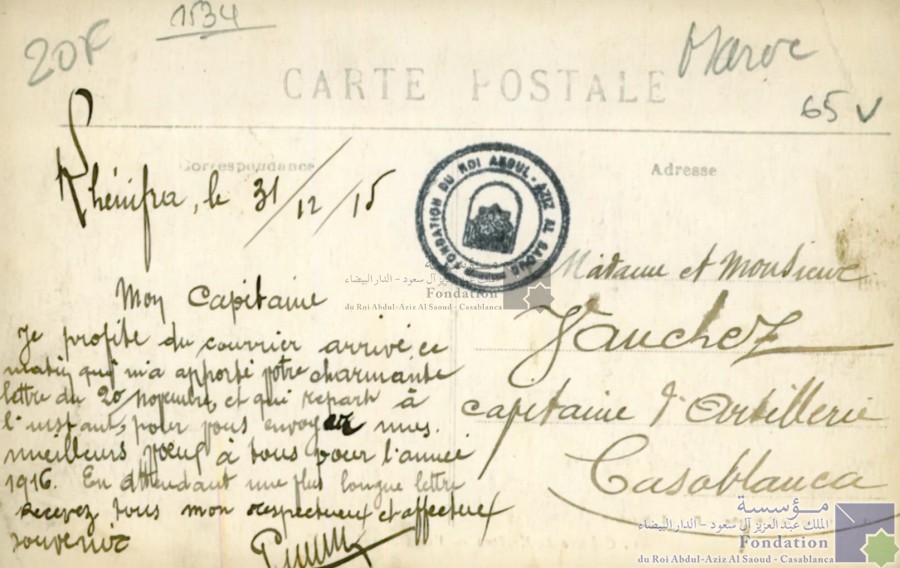 1534
20F
Maroc
CARTE POSTALE
65 V
Correspondance
Adresse
Khénifra, le 31/12/15
FONDATION DU ROI ABDUL-AZIZ AL SAOUD
Mon Capitaine
Je profite du courrier arrivé ce
matin qui m'a apporté votre charmante
lettre du 20 novembre, et qui repart à
l'instant, pour vous envoyer mes
meilleurs voeux à tous pour l'année
1916. En attendant une plus longue lettre
recevez tous mon respectueux et affectueux
souvenir
Madame et Monsieur
Vauchez
capitaine d'Artillerie
Casablanca
مؤسسة
الملك عبد العزيز آل سعود - الدار البيضاء
Fondation
du Roi Abdul-Aziz Al Saoud - Casablanca
مؤسسة
الملك عبد العزيز آل سعود - الدار البيضاء
Fondation
du Roi Abdul-Aziz Al Saoud - Casablanca